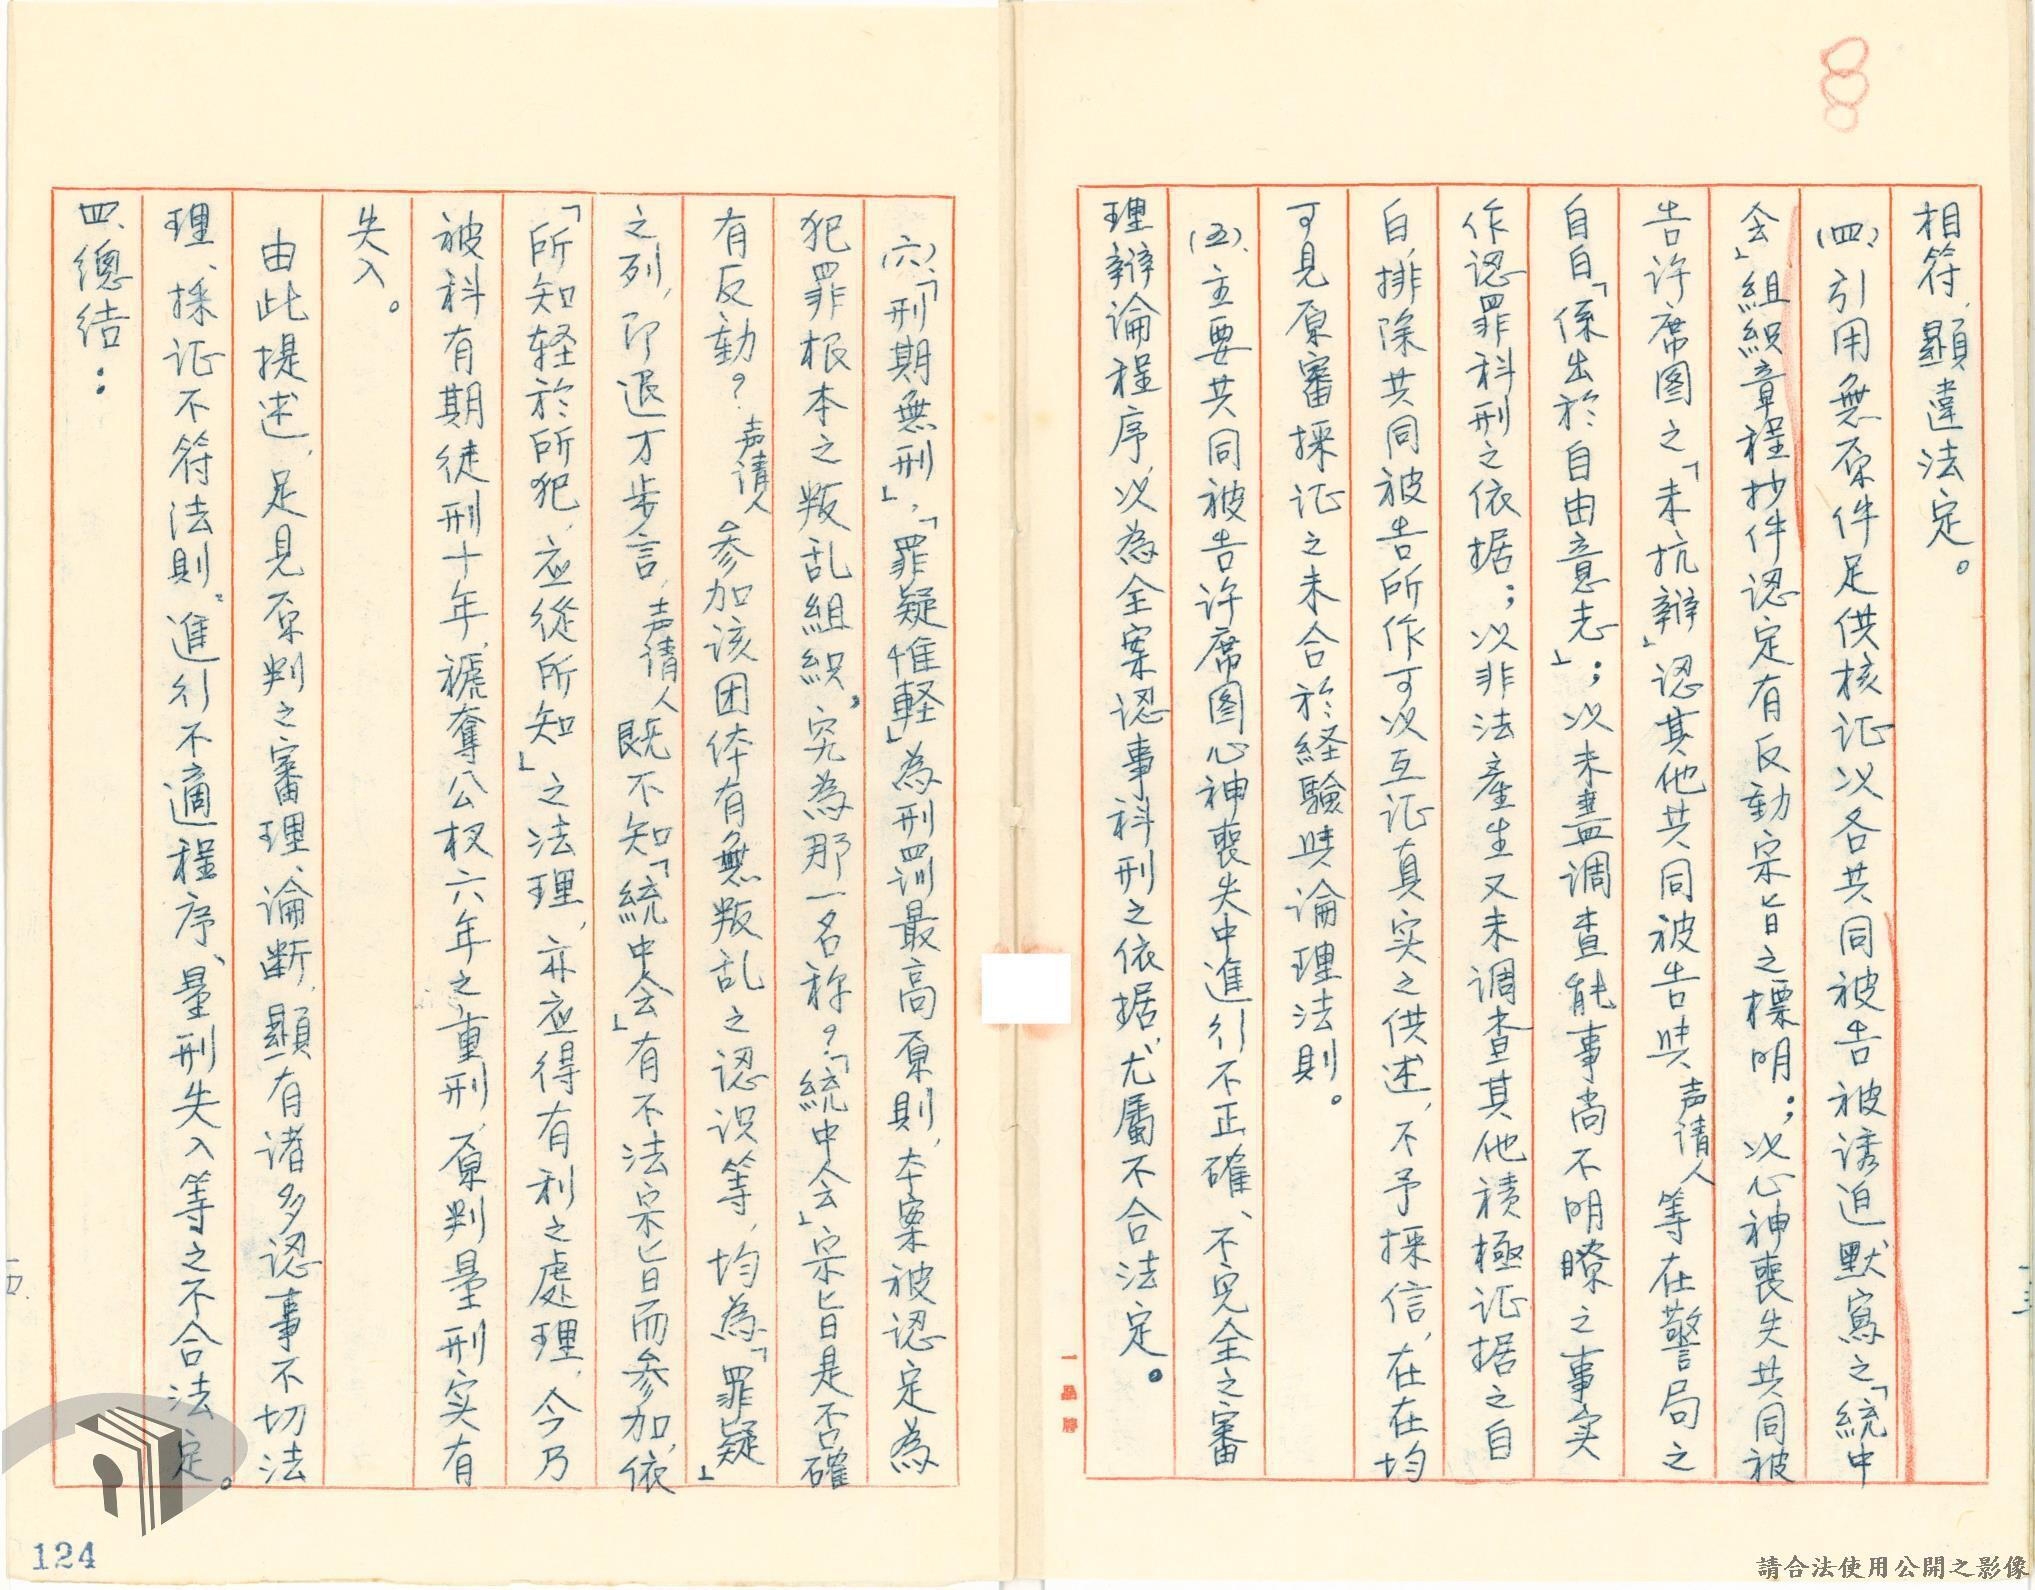 相符，顯違法定。
(四)、引用無原件足供核证以各共同被告被诱迫默寫之「統中
会」組織章程抄件認定有反動宗旨之標明；以心神喪失共同被
告许席图之「未抗辯」認其他共同被告與声请人等在警局之
自白「係出於自由意志」；以未盡調查能事尚不明瞭之事实
作認罪科刑之依据；以非法產生又未調查其他積極证据之自
白，排除共同被告所作可以互证真实之供述，不予採信，在在均
可見原審採证之未合於経驗與論理法則。
(五)、主要共同被告许席图心神喪失中進行不正確、不完全之審
理辯論程序，以為全案認事科刑之依据，尤屬不合法定。
(六)、「刑期無刑」，「罪疑惟軽」為刑罰最高原則，本案被認定為
犯罪根本之叛乱組織，究為那一名称？「統中会」宗旨是否確
有反動？声請人参加该团体有無叛乱之認识等，均為「罪疑」
之列，即退万步言，声请人既不知「統中会」有不法宗旨而参加，依
「所知轻於所犯，应從所知」之法理，亦应得有利之處理，今乃
被科有期徒刑十年，褫奪公权六年之重刑，原判量刑实有
失入。
由此提述，足見原判之審理、論断，顯有诸多認事不切法
理、採证不符法則、進行不適程序、量刑失入等之不合法定。
四、總结：
一品牌
124
請合法使用公開之影像